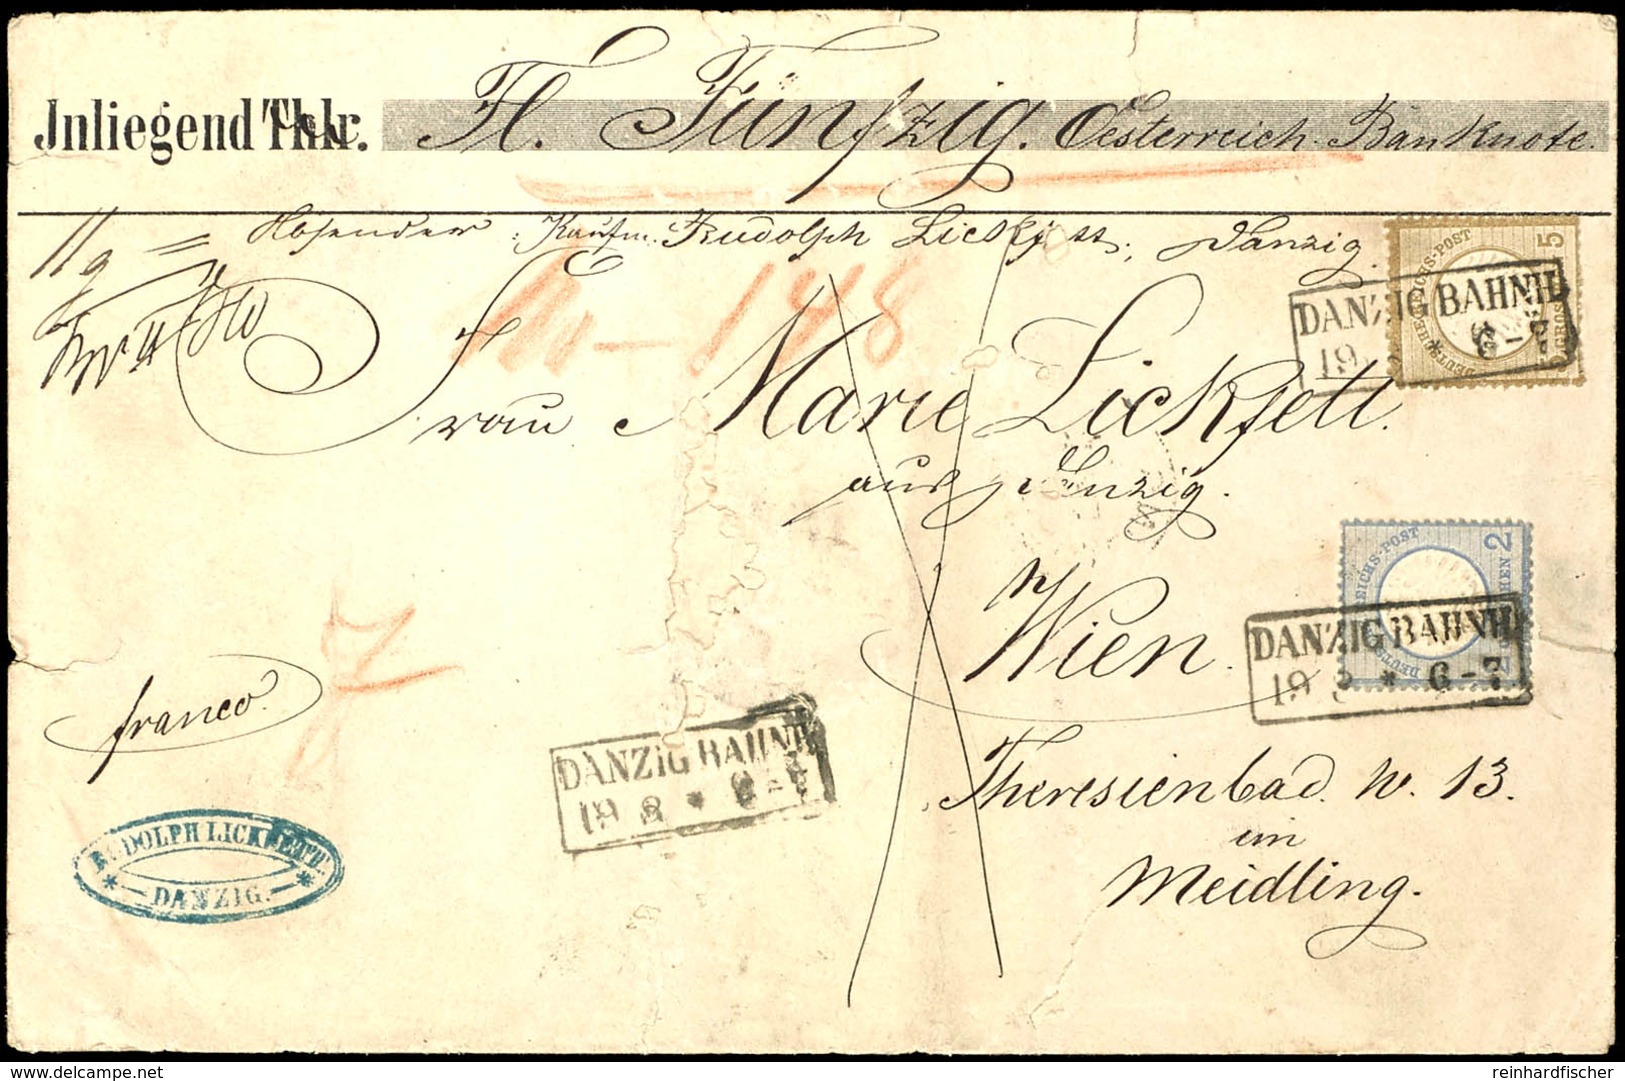 Jnliegend Thlr. Fl. Fünfzig. Oesterreich. Banknote.
11 g = Absender: Kaufm. Rudolph Lickfett, Danzig.
No 148
5
REICHS-POST
DANZIG BAHNH.
19 * 6-7
Frau Marie Lickfett.
aus Danzig.
in
Wien.
2
REICHS-POST
DANZIG BAHNH.
19 8 * 6-7
franco.
DANZIG BAHNH.
19 8 * 6-7
Theresienbad. N. 13.
im
Meidling.
RUDOLPH LICKFETT.
* DANZIG. *
delcampe.net
reinhardfischer